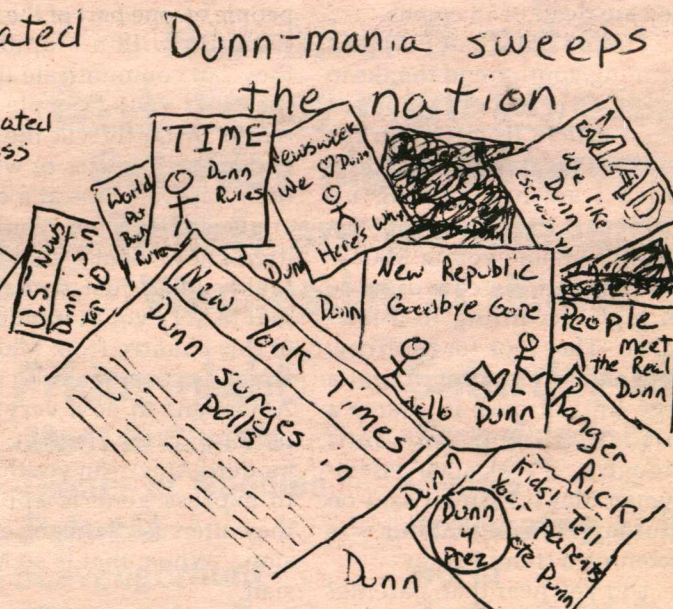 ated
Dunn-mania sweeps
the nation
ated
ss
TIME
Dunn
Rules
Newsweek
We ♡ Dunn
Here's Why
MAD
we like
Dunn
(seriously)
World
U.S. News
Dunn is in
top 10
Dunn
Dunn
New Republic
Goodbye Gore
Hello Dunn
People
meet
the Real
Dunn
New York Times
Dunn surges in
Polls
Ranger
Rick
Kids! Tell
Your parents
vote Dunn
Dunn
Dunn
4
Prez
Dunn